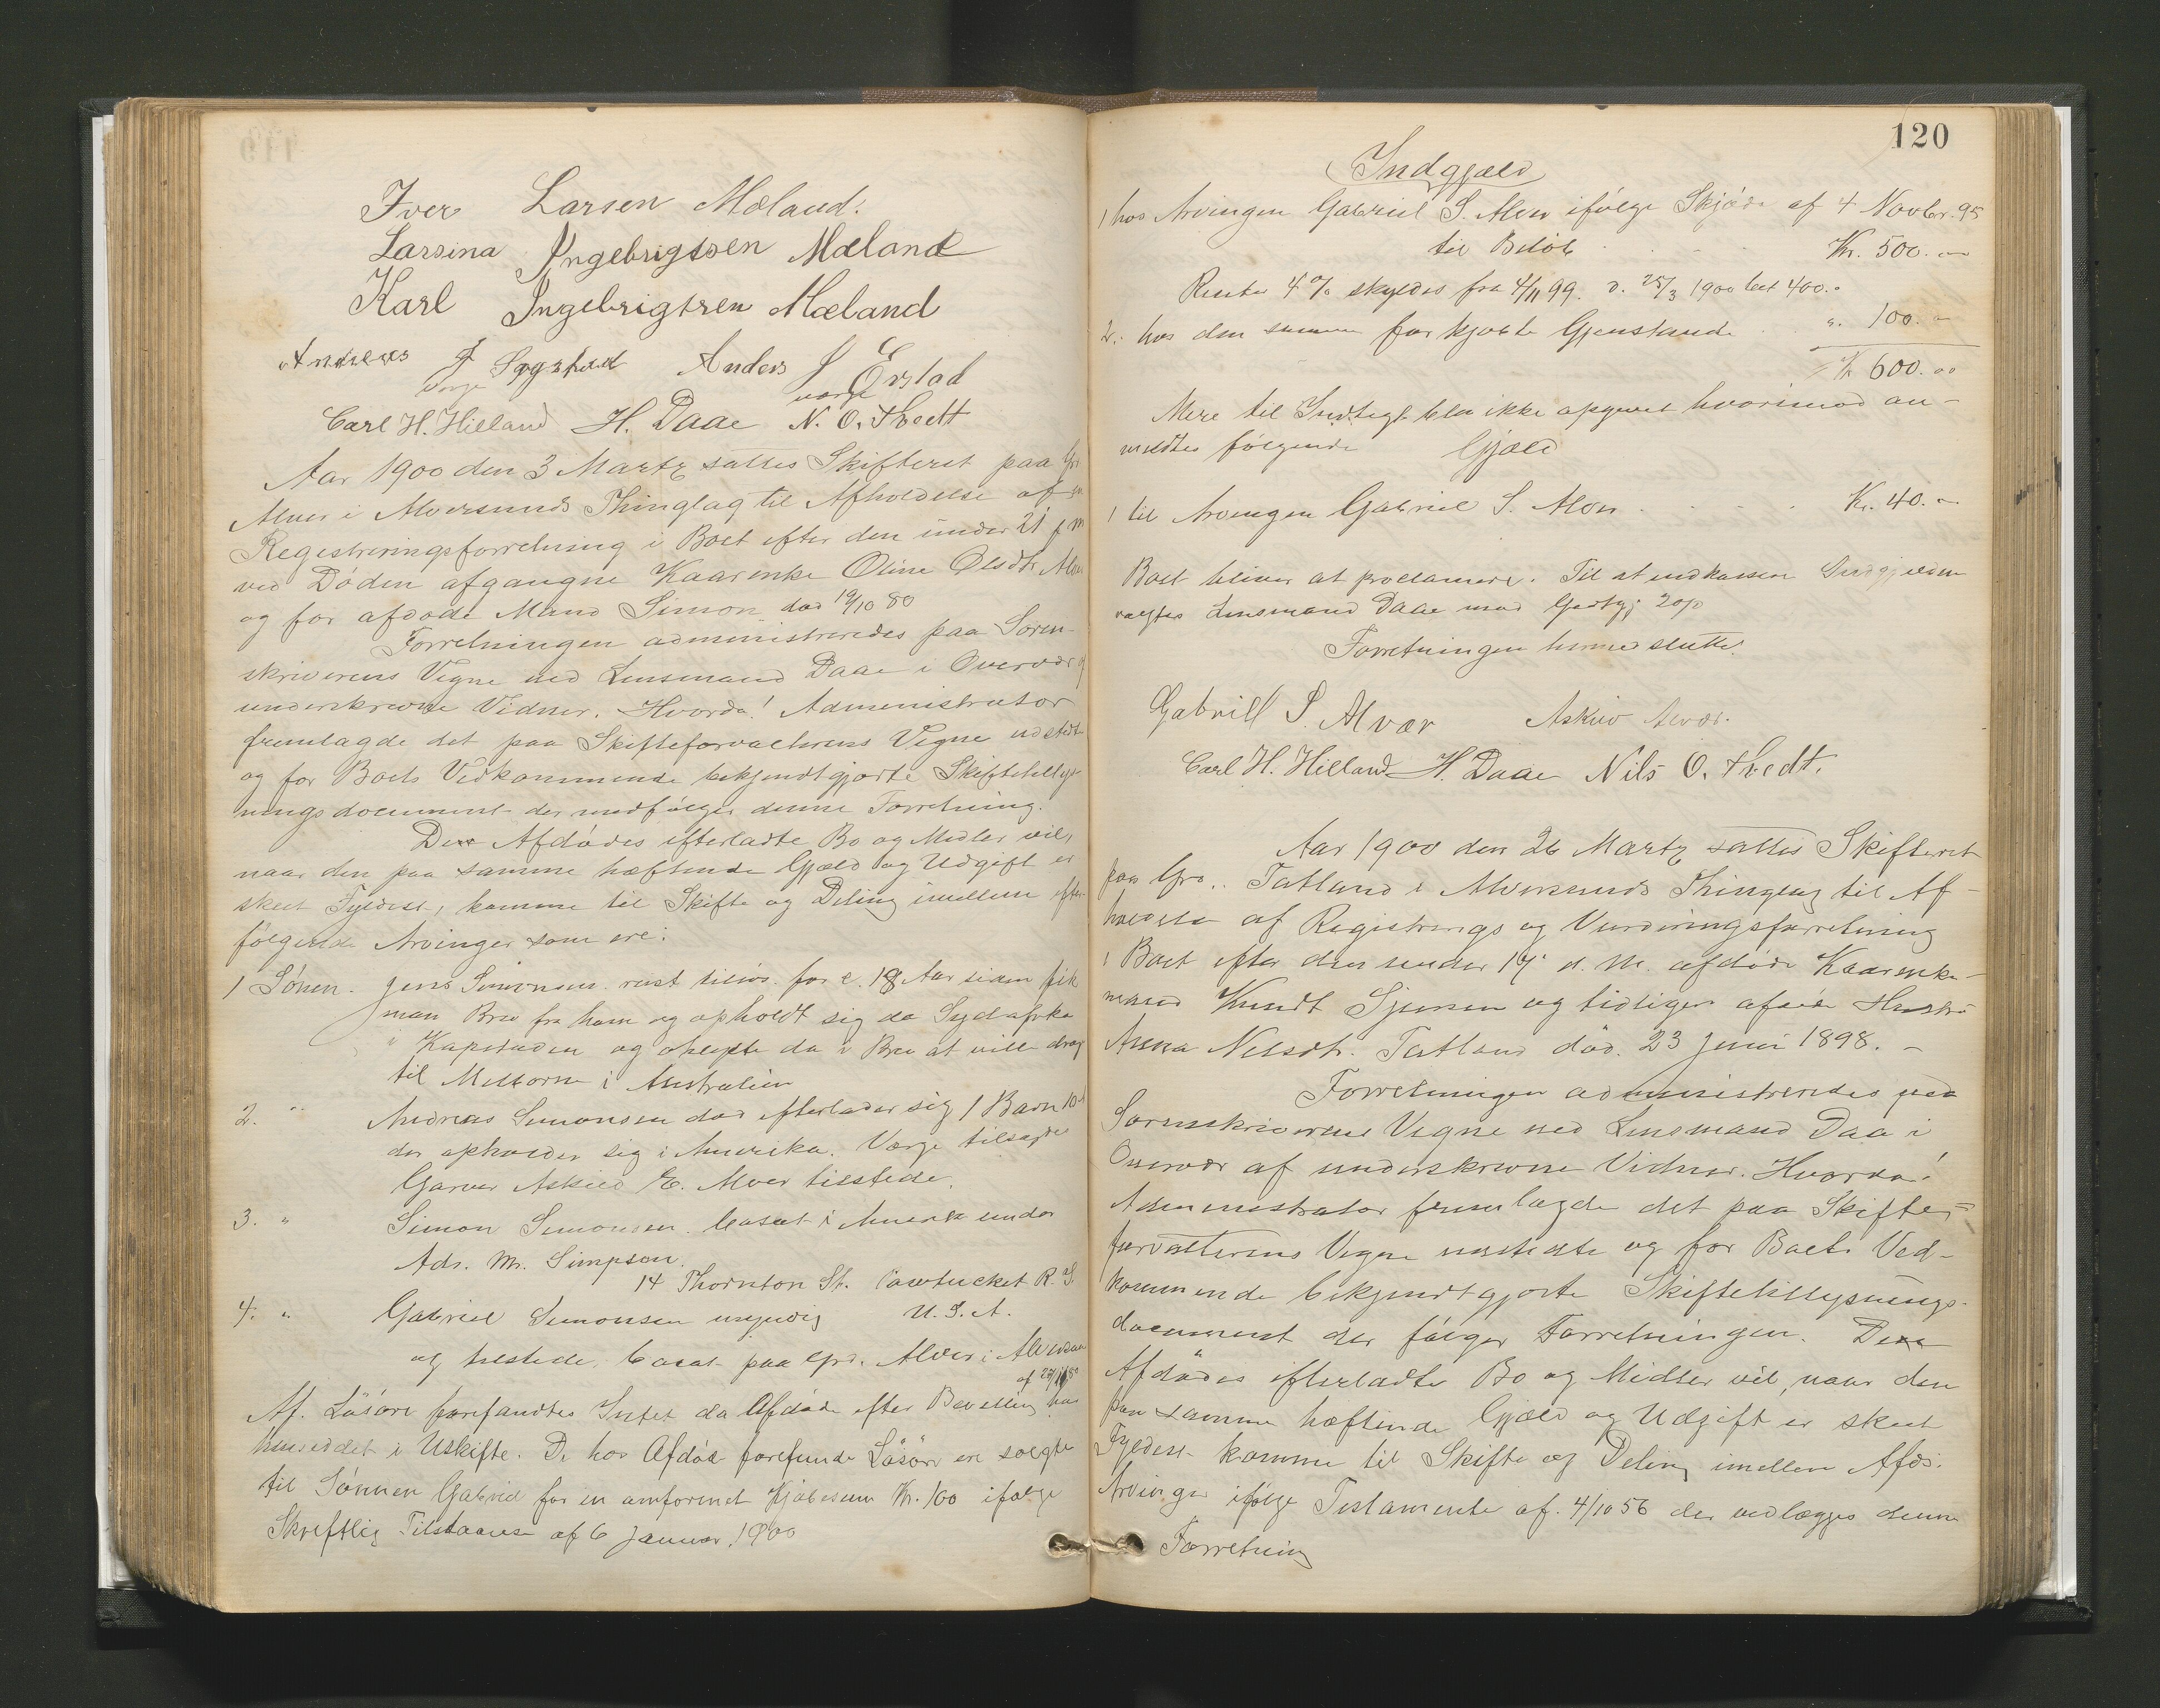 Iver Larsen Mæland.
Larsina Ingebrigtsen Mæland
Karl Ingebrigtsen Mæland
Andreas J Sogstad Anders J Erstad
Værge værge
Carl H. Hilland H. Daae N. O. Hvedt
Aar 1900 den 3 Martz sattes Skifteret paa
Alver i Alversunds Thinglag til Afholdelse af
Registreringsforretning i Boet efter den under 21 f. M
ved Døden afgangne Kaarenke Oline Olsdtr. Alver
og før afdøde Mand Simon død 19/10 80
Forretningen administreredes paa Soren-
skriverens Vegne ved Lensmand Daae i Overvær
underskrevne Vidner. Hvorda! Administrator
fremlagde det paa Skifteforvalterens Vegne udstedte
og for Boets Vedkommende bekjendtgjorte Skiftetillys-
ningsdocument der medfølger denne Forretning.
Den Afdødes efterladte Bo og Midler vil,
naar den paa samme hæftende Gjæld og Udgift er
skeet Fyldest, komme til Skifte og Deling imellem efter-
følgende Arvinger som ere:
1 Sønen. Jens Simonsen reist tilsøs. for c. 18 Aar siden fik
man Brev fra ham og opholdt sig da Sydafrika
Kapstaden og da i Brev at ville drage
til Melborne i Australien
2. " Andreas Simonsen død efterlader sig 1 Barn 10
der opholder sig i Amerika. Værge tilsagdes
Garver Askild E. Alver tilstede.
3. " Simon Simonsen. bosat i Amerika under
Adr. Mr. Simpson.
14 Thornton St. Pawtucket R. I.
4. " Gabriel Simonsen myndig U. S. A.
og tilstede, bosat paa Grd. Alver i Alversund
Af Løsøre forefandtes Intet da Afdøde efter Bevilling har
hensiddet i Uskifte. De hos Afdøde forefundne Løsøre ere solgte
til Sønnen Gabriel for en omforenet Kjøbesum Kr. 100 ifølge
Skriftlig Tilstaaelse af 6 Januar 1900
120
Indgjæld
1 hos Arvingen Gabriel S. Alver ifølge Skjøde af 4 Novbr. 95
til Beløb Kr. 500.
Renter 4 % skyldes fra 4/11 99. 25/3 1900 400.
2. hos den samme for kjøbte Gjenstande " 100.
Kr 600.00
Mere til Indtægt blev ikke opgivet hvorimod an-
meldtes følgende Gjæld
1 til Arvingen Gabriel S. Alver Kr. 40.
Boet bliver at proclamere. Til at indkassere Indgjælden
valgtes Lensmand Daae mod Godtgj 2 o/o
Forretningen hermed sluttet.
Gabriell S. Alvær Askild Alvær.
Carl H. Hilland H. Daae Nils O. Hvedt.
Aar 1900 den 26 Martz sattes Skifteret
paa Grd. Tatland i Alversunds Thinglag til Af-
holdelse af Registrerings og Vurderingsforretning
i Boet efter den under 17 d. M. afdøde Kaarenke-
mand Knudt Sjursen og tidligere afdøde Hustru
Anna Nelsdtr. Tatland død. 23 Juni 1898.
Forretningen administreredes paa
Sorenskriverens Vegne ved Lensmand Daae i
Overvær af underskrevne Vidner. Hvorda!
Administrator fremlagde det paa Skifte-
forvalterens Vegne udstedte og for Boets Ved-
kommende bekjendtgjorte Skiftetillysnings-
document der følger Forretningen. Den
Afdødes efterladte Bo og Midler vil, naar den
paa samme hæftende Gjæld og Udgift er skeet
Fyldest komme til Skifte og Deling imellem Afds.
Arvinger ifølge Testamente af. 4/10 56 der vedlægges denne
Forretning